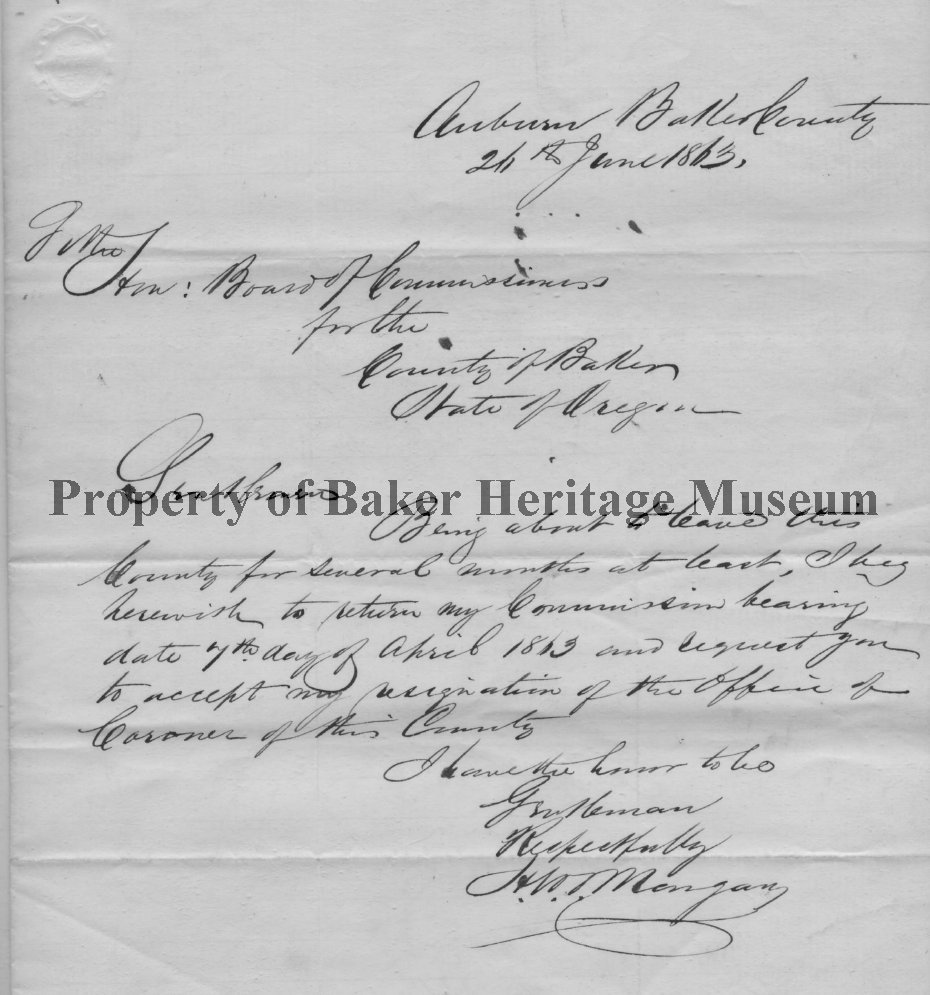 Auburn Baker County
24th June 1863.
To the
Hon: Board of Commissioners
for the
County of Baker
State of Oregon
Gentlemen
Property of Baker Heritage Museum
Being about to leave this
County for several months at least, I beg
herewith to return my Commission bearing
date 7th day of April 1863 and request you
to accept my resignation of the Office of
Coroner of this County
I have the honor to be
Gentleman
Respectfully
H. W. Morgan